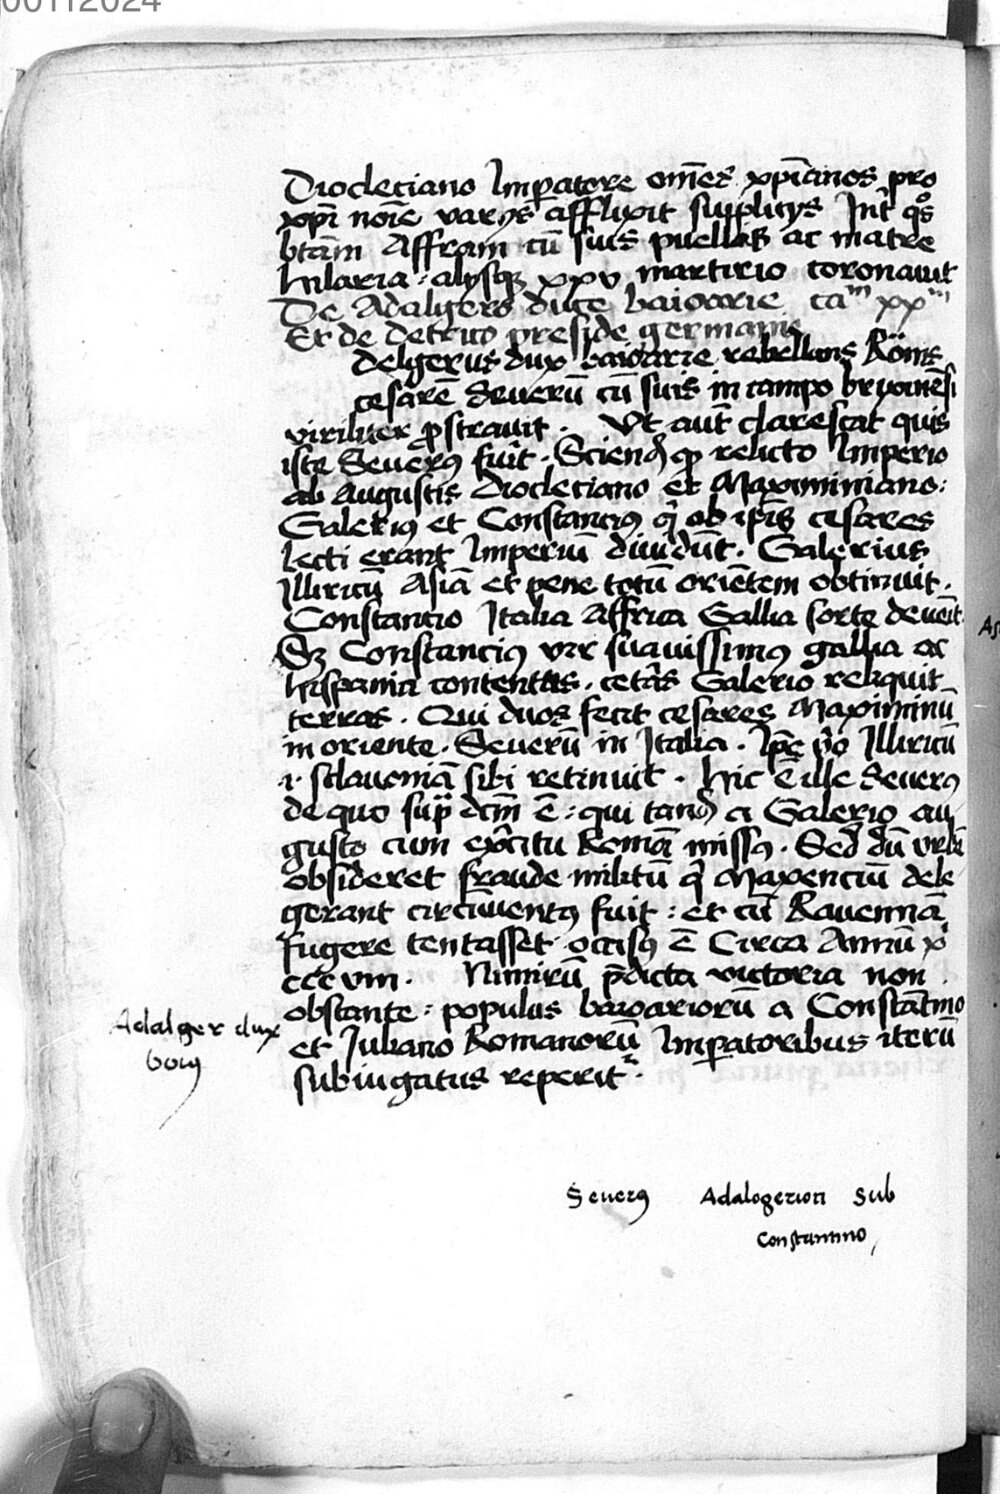 00112024
Diocleciano Imperatore om̄es xpīanos pro
xpī noīe varijs afflixit supplicijs Int̄ qͦs
btām Affram cū suis puellab̄ ac matre
hilaria : alijsqꝫ xxv martirio coronauit
De Adalgero duce baioarie caᵐ xxᵐ
Et de detruo preside germanie
delgerus dux baioarie rebellans Roms
cesarē Seuerū cū suis in campo brixinēsi
viriliter ꝓstrauit . Vt aut̄ clarescat quis
iste Seuerꝰ fuit . Sciend̄ ꝙ relicto Imperio
ab Augustis Diocleciano et Maximiniano :
Galeriꝰ et Constanciꝰ q̄ ob ip̄is cesares
lecti erant Imperiū diuidūt . Galerius
Illiricū Asiā et pene totū oriētem obtinuit .
Constancio Italia Affrica Gallia sorte deuēit
Sꝫ Constanciꝰ vir suauissimꝰ gallia ac
hispania contentus . cet̄as Galerio reliquit
terras . Qui duos fecit cesares Maximinū
in oriente . Seuerū in Italia . Ip̄e v̄o Illiricū
.i. sclauoniā sibi retinuit . hic ē ille Seuerꝰ
de quo sup̄ dc̄m ē : qui tand̄ a Galerio au
gusto cum ex̄citu Romā missꝰ . Sed dū vrbē
obsideret fraude militū q̄ Maxenciū dele
gerant circūuentꝰ fuit : et cū Rauennā
fugere tentasset occisꝰ ē Circa Annū xͥ
cccviii . Nimirū p̄dicta victoria non
obstante : populus baioariorū a Constātino
et Juliano Romanorū Imperatoribus iterū
subiugatus reperit̄ .
Adalger dux
boiꝰ
Seuerꝰ Adalogerion sub
Constantino